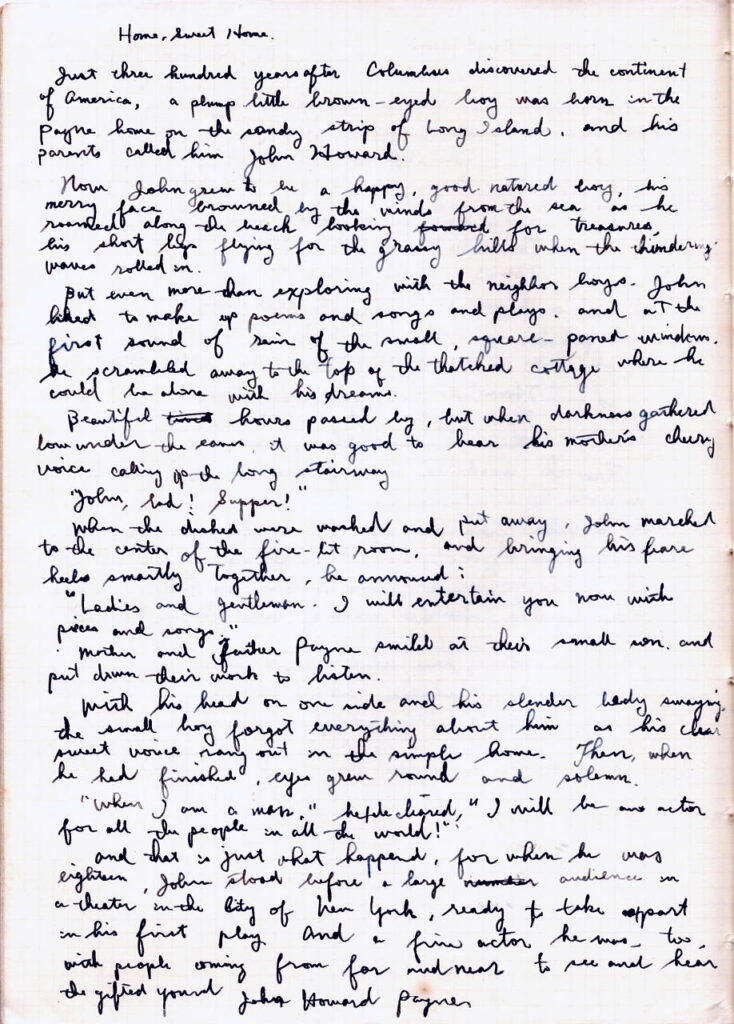 Home, Sweet Home.
Just three hundred years after Columbus discovered the continent
of America, a plump little brown-eyed boy was born in the
Payne home on the sandy strip of Long Island. and his
parents called him John Howard.
Now John grew to be a happy, good natured boy, his
merry face browned by the winds from the sea as he
roamed along the beach looking for treasures,
his short legs flying for the grassy hills when the thundering
waves rolled in.
But even more than exploring with the neighbor boys. John
liked to make up poems and songs and plays. and at the
first sound of rain of the small, square-paned windows.
he scrambled away to the top of the thatched cottage where he
could be alone with his dreams.
Beautiful hours passed by, but when darkness gathered
low under the eaves, it was good to hear his mother's cheery
voice calling up the long stairway
"John, lad! Supper!"
When the dished were washed and put away, John marched
to the center of the fire-lit room, and bringing his
heels smartly together, he announced:
"Ladies and gentleman. I will entertain you now with
pieces and songs."
Mother and father Payne smiled at their small son. and
put down their work to listen.
With his head on one side and his slender body swaying,
the small boy forgot everything about him as his clear
sweet voice rang out in the simple home. Then, when
he had finished, eyes grew round and solemn.
"When I am a man," he declared, "I will be an actor
for all the people in all the world!"
And that is just what happend, for when he was
eighteen, John stood before a large audience in
a theater in the City of New York, ready to take part
in his first play. And a fine actor he was, too,
with people coming from far and near to see and hear
the gifted John Howard Payne.